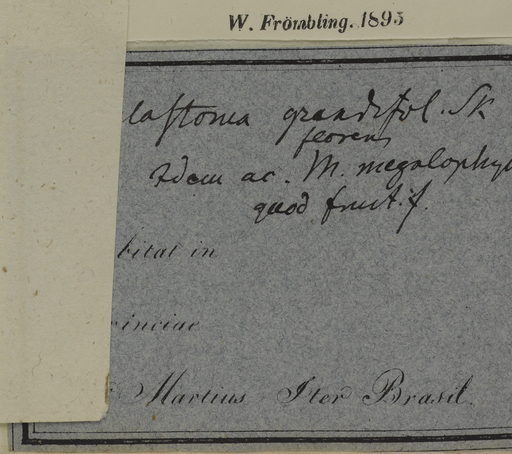 W. Frömbling. 1895
lastoma grandifol. Sk
florens
Idem ac. M. megalophy
quod fruct. f.
bitat in
inciae
Martius Iter Brasil.